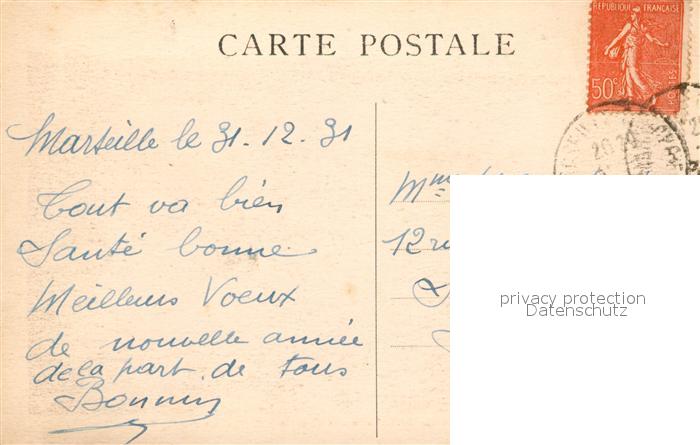 CARTE POSTALE
REPUBLIQUE FRANÇAISE
50c
POSTES
Marseille le 31.12.31
Tout va bien
Santé bonne
Meilleurs Voeux
de nouvelle année
de la part de tous
Mme
12
privacy protection
Datenschutz